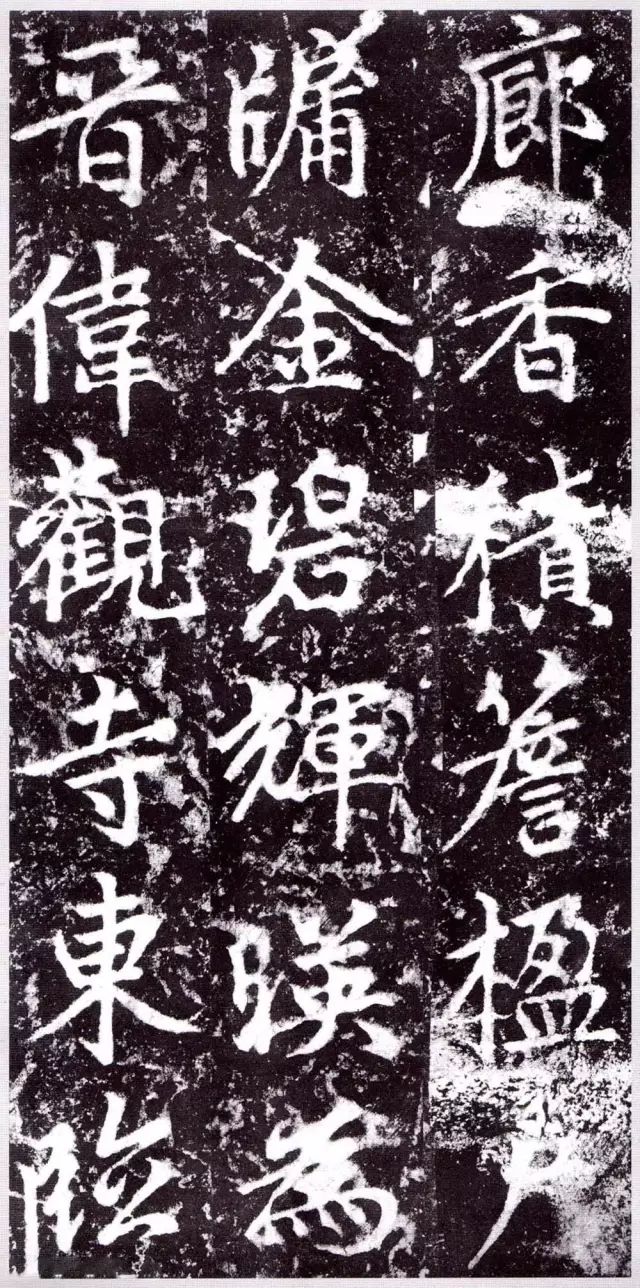 廊香積簷楹户
牖金碧輝暎為
晉偉觀寺東臨